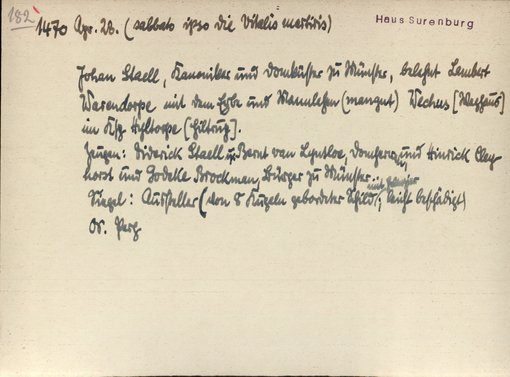 182
Haus Surenburg
1470 Apr. 28. (sabbato ipso die Vitalis martiris)
Johan Staell, Kanoniker und Domküster zu Münster, belehnt Lambert
Warendorpe mit dem Erbe und Mannlehen (mangut) Wechus [Weghaus]
im Ksp. Hyltorpe [Hiltrup].
Zeugen: Diderick Staell u. Bernt van Lyntloe, Domherren, und Hinrick Cley
horst und Godeke Brockman, Bürger zu Münster.
Siegel: Aussteller (von 8 Kugeln gebordeter Schild; leicht beschädigt)
Or. Perg